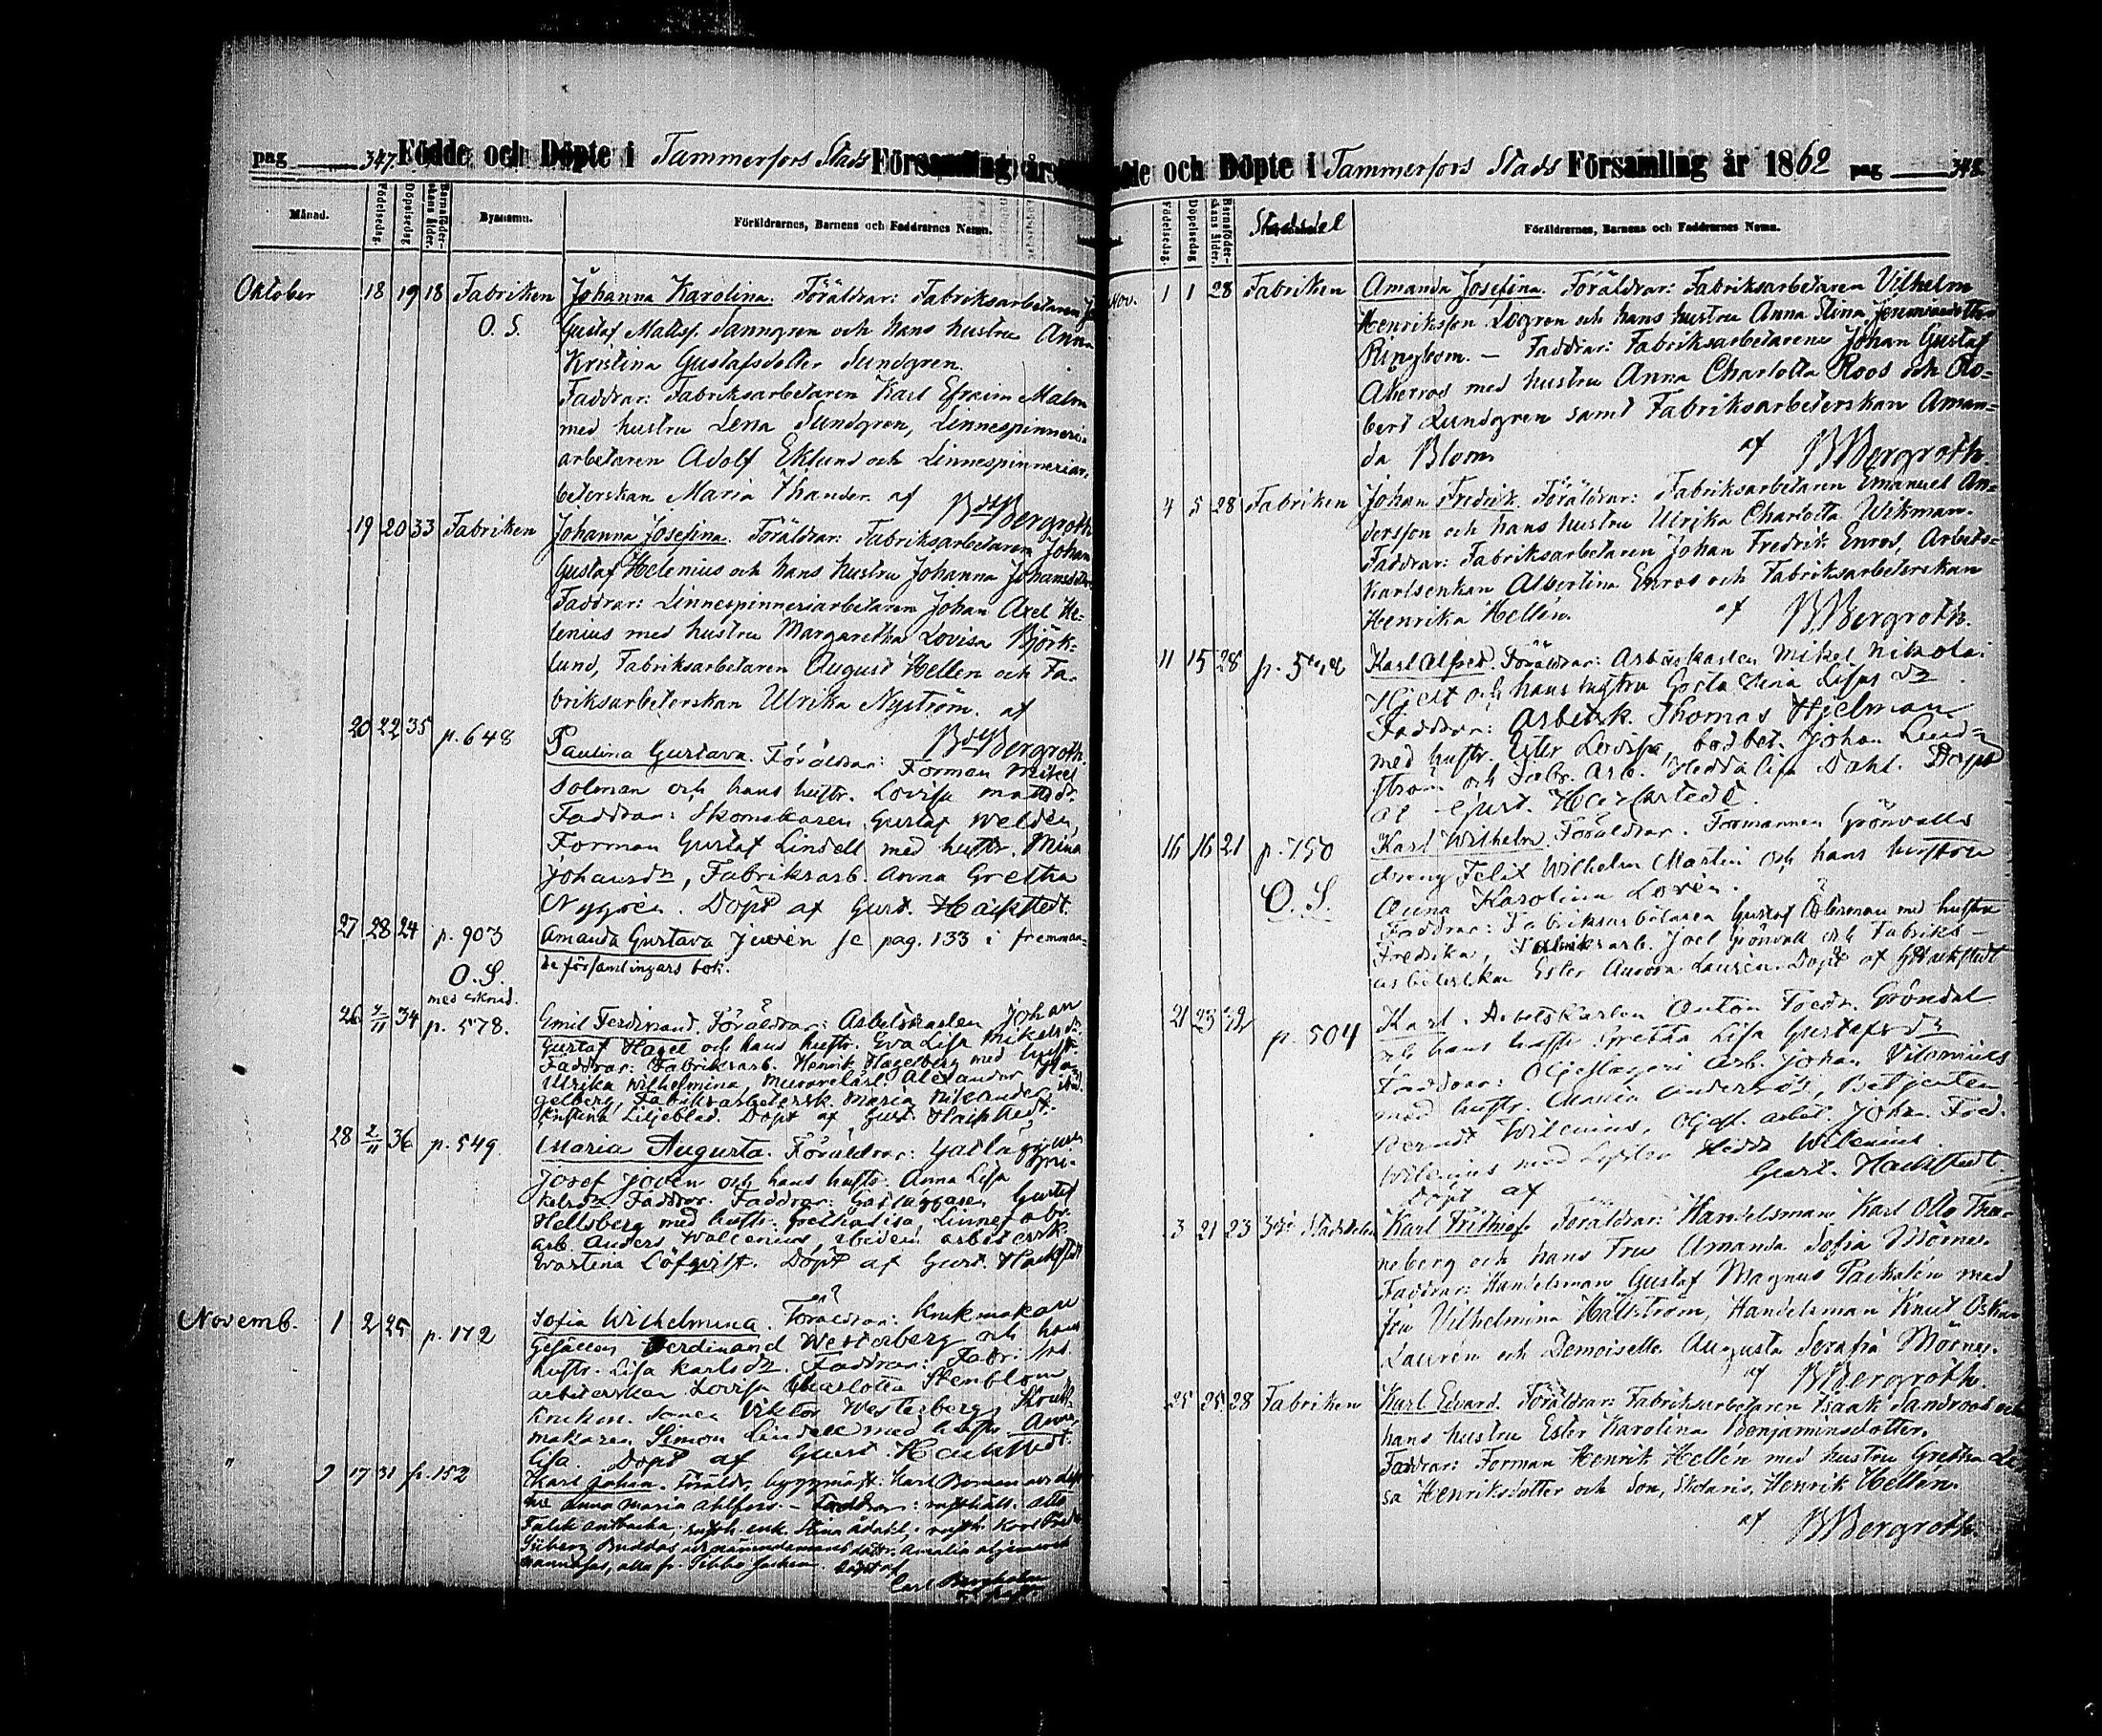 pag 347 Födde och Döpte i Tammerfors Stads Församling år
Månad. Födelsedag. Döpelsedag Barnaföderskans ålder. Bynamn. Föräldrarnes, Barnens och Faddrarnes Namn.
Oktober 18 19 18 Fabriken Johanna Karolina. Föräldrar: Fabriksarbetaren
O. S. Gustaf Mattsf. Tanngren och hans hustru Anna
Kristina Gustafsdotter Sundgren.
Faddrar: Fabriksarbetaren Karl Efraim Malm
med hustru Lena Sundgren, Linnespinneri-
arbetaren Adolf Eklund och Linnespinneriar-
beterskan Maria Thander. af Bergroth
19 20 33 Fabriken Johanna Josefina. Föräldrar: Fabriksarbetaren Johan
Gustaf Helenius och hans hustru Johanna Johansdotter
Faddrar: Linnespinneriarbetaren Johan Axel He-
lenius med hustru Margaretha Lovisa Björk-
lund, Fabriksarbetaren August Hellen och Fa-
briksarbeterskan Ulrika Nyström. af
Bergroth.
20 22 35 p. 648 Paulina Gustava. Föräldrar: Forman Mikel
Soleman och hans hustr. Lovisa Mattsdr.
Faddrar: Skomakaren Gustaf Welden,
Forman Gustaf Lindell med hustr. Mina
Johansdr, Fabriksarb. Anna Gretha
Nygren. Döpt af Gust. Hackstedt.
27 28 24 p. 903 Amanda Gustava Juvén se pag. 133 i fremman-
O. S. de församlingars bok.
26 2/11 34 p. 578. Emil Ferdinand. Föräldrar: Arbetskarlen Johan
Gustaf Hagel och hans hustr. Eva Lisa Mikelsdr.
Faddrar: Fabriksarb. Henrik Hagelberg med hustr.
Ulrika Wilhelmina, Alexander Ha-
gelberg, Fabriksarbetersk. Maria
Kristina Liljeblad. Döpt af Gust. Hackstedt.
28 2/11 36 p. 549. Maria Augusta. Föräldrar:
Josef Jovén och hans hustr. Anna Lisa
Faddrar. Faddrar: Gustaf
Hellsberg med hustr. Linnefabr.
arb. Anders Wallenius, arbetersk.
Löfqvist. Döpt af Gust. Hackstedt
Novemb. 1 2 25 p. 172 Sofia Wilhelmina. Föräldrar: Krukmakare
Gesällen Ferdinand Westerberg och hans
hustr. Lisa Karlsdr. Faddrar: Fabr.
arbeterskan Lovisa Charlotta Stenblom,
Viktor Westerberg,
makaren Simon Lindell med hustr. Anna
Lisa. Döpt af Gust. Hackstedt.
" 9 17 31 p. 152 Karl Johan. Föräldr. byggmäst. Karl
Anna Maria Ahlfors. – Faddrar:
enk. Stina
Amalia
Döpt af
Carl
och Döpte i Tammerfors Stads Församling år 1862 pag 348
Födelsedag. Döpelsedag Barnaföderskans ålder. Stadsdel Föräldrarnes, Barnens och Faddrarnes Namn.
Nov. 1 1 28 Fabriken Amanda Josefina. Föräldrar: Fabriksarbetaren Vilhelm
Henriksson Logren och hans hustru Anna Stina
Ringbom. – Faddrar: Fabriksarbetarene Johan Gustaf
Akerros med hustru Anna Charlotta Roos och Ro-
bert Lundgren samt Fabriksarbeterskan Aman-
da Blom. af Bergroth.
4 5 28 Fabriken Johan Fredrik. Föräldrar: Fabriksarbetaren Emanuel An-
dersson och hans hustru Ulrika Charlotta Wikman.
Faddrar: Fabriksarbetaren Johan Fredrik Enros, Arbets-
karlsenkan Albertina Enros och Fabriksarbeterskan
Henrika Hellen. af Bergroth.
11 15 28 Karl Alfred. Föräldrar: Arbetskarlen Mikel Nikolai
Hjelt och hans hustru
Faddrar: Arbetsk. Thomas Hjelman
med hustr. Ester Lovisa, Johan Lind-
ström och Fabr. Arb. Hedda Lisa Dahl. Döpt
af Gust. Hackstedt.
16 16 21 p. 750 Karl Wilhelm. Föräldrar. Formannen Grönvalls
dreng Felix Wilhelm Martin och hans hustru
O. S. Anna Karolina Lovén.
Faddrar: Fabriksarbetaren Gustaf Åkerman med hustru
Fredrika, Fabriksarb. Joel Grönvall och Fabriks-
arbeterskan Ester Aurora Laurén. Döpt af G Hackstedt
21 23 32 p. 504 Karl. Arbetskarlen Anton Fredr. Gröndal
och hans hustr. Gretha Lisa Gustafsdr
Faddrar: Oljeslageri Arb. Johan
med hustr. Maria Andersdr, Betjenten
Berndt Wilenius, Johan Fred.
Wilenius med Hedda Wilenius.
Döpt af Gust. Hackstedt.
3 21 23 3dje Stadsdelen Karl Frithiof. Föräldrar: Handelsman Karl Otto Tha-
neberg och hans Fru Amanda Sofia Mörne.
Faddrar: Handelsman Gustaf Magnus Packalén med
Fru Vilhelmina Hallström, Handelsman Knut Oskar
Laurén och Demoiselle Augusta Serafia Mörne.
af Bergroth.
25 25 28 Fabriken Karl Edvard. Föräldrar: Fabriksarbetaren Isaak Sandroos och
hans hustru Ester Karolina Benjaminsdotter.
Faddrar: Forman Henrik Hellén med hustru Gretha Li-
sa Henriksdotter och Son, Skolaris, Henrik Hellén.
af Bergroth.